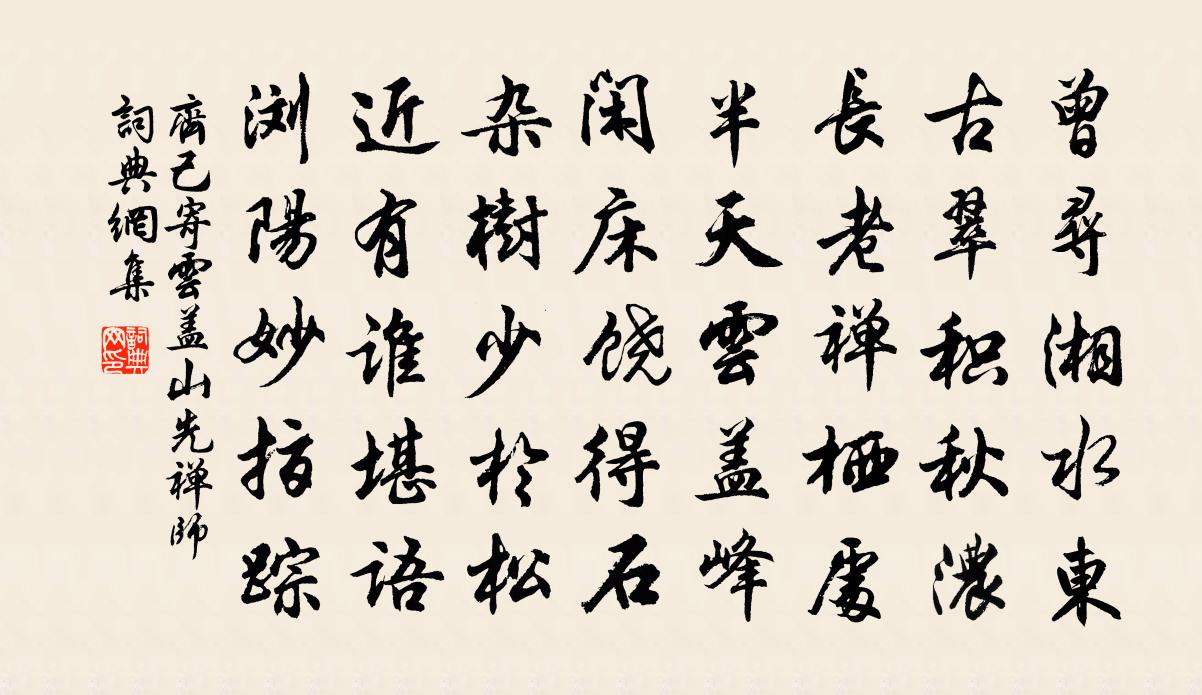 曾尋湘水東
古翠积秋濃
長老禅栖處
半天雲盖峰
闲床饶得石
杂樹少於松
近有谁堪语
浏陽妙指踪
齊己寄雲盖山先禅師
詞典網集
詞典网印